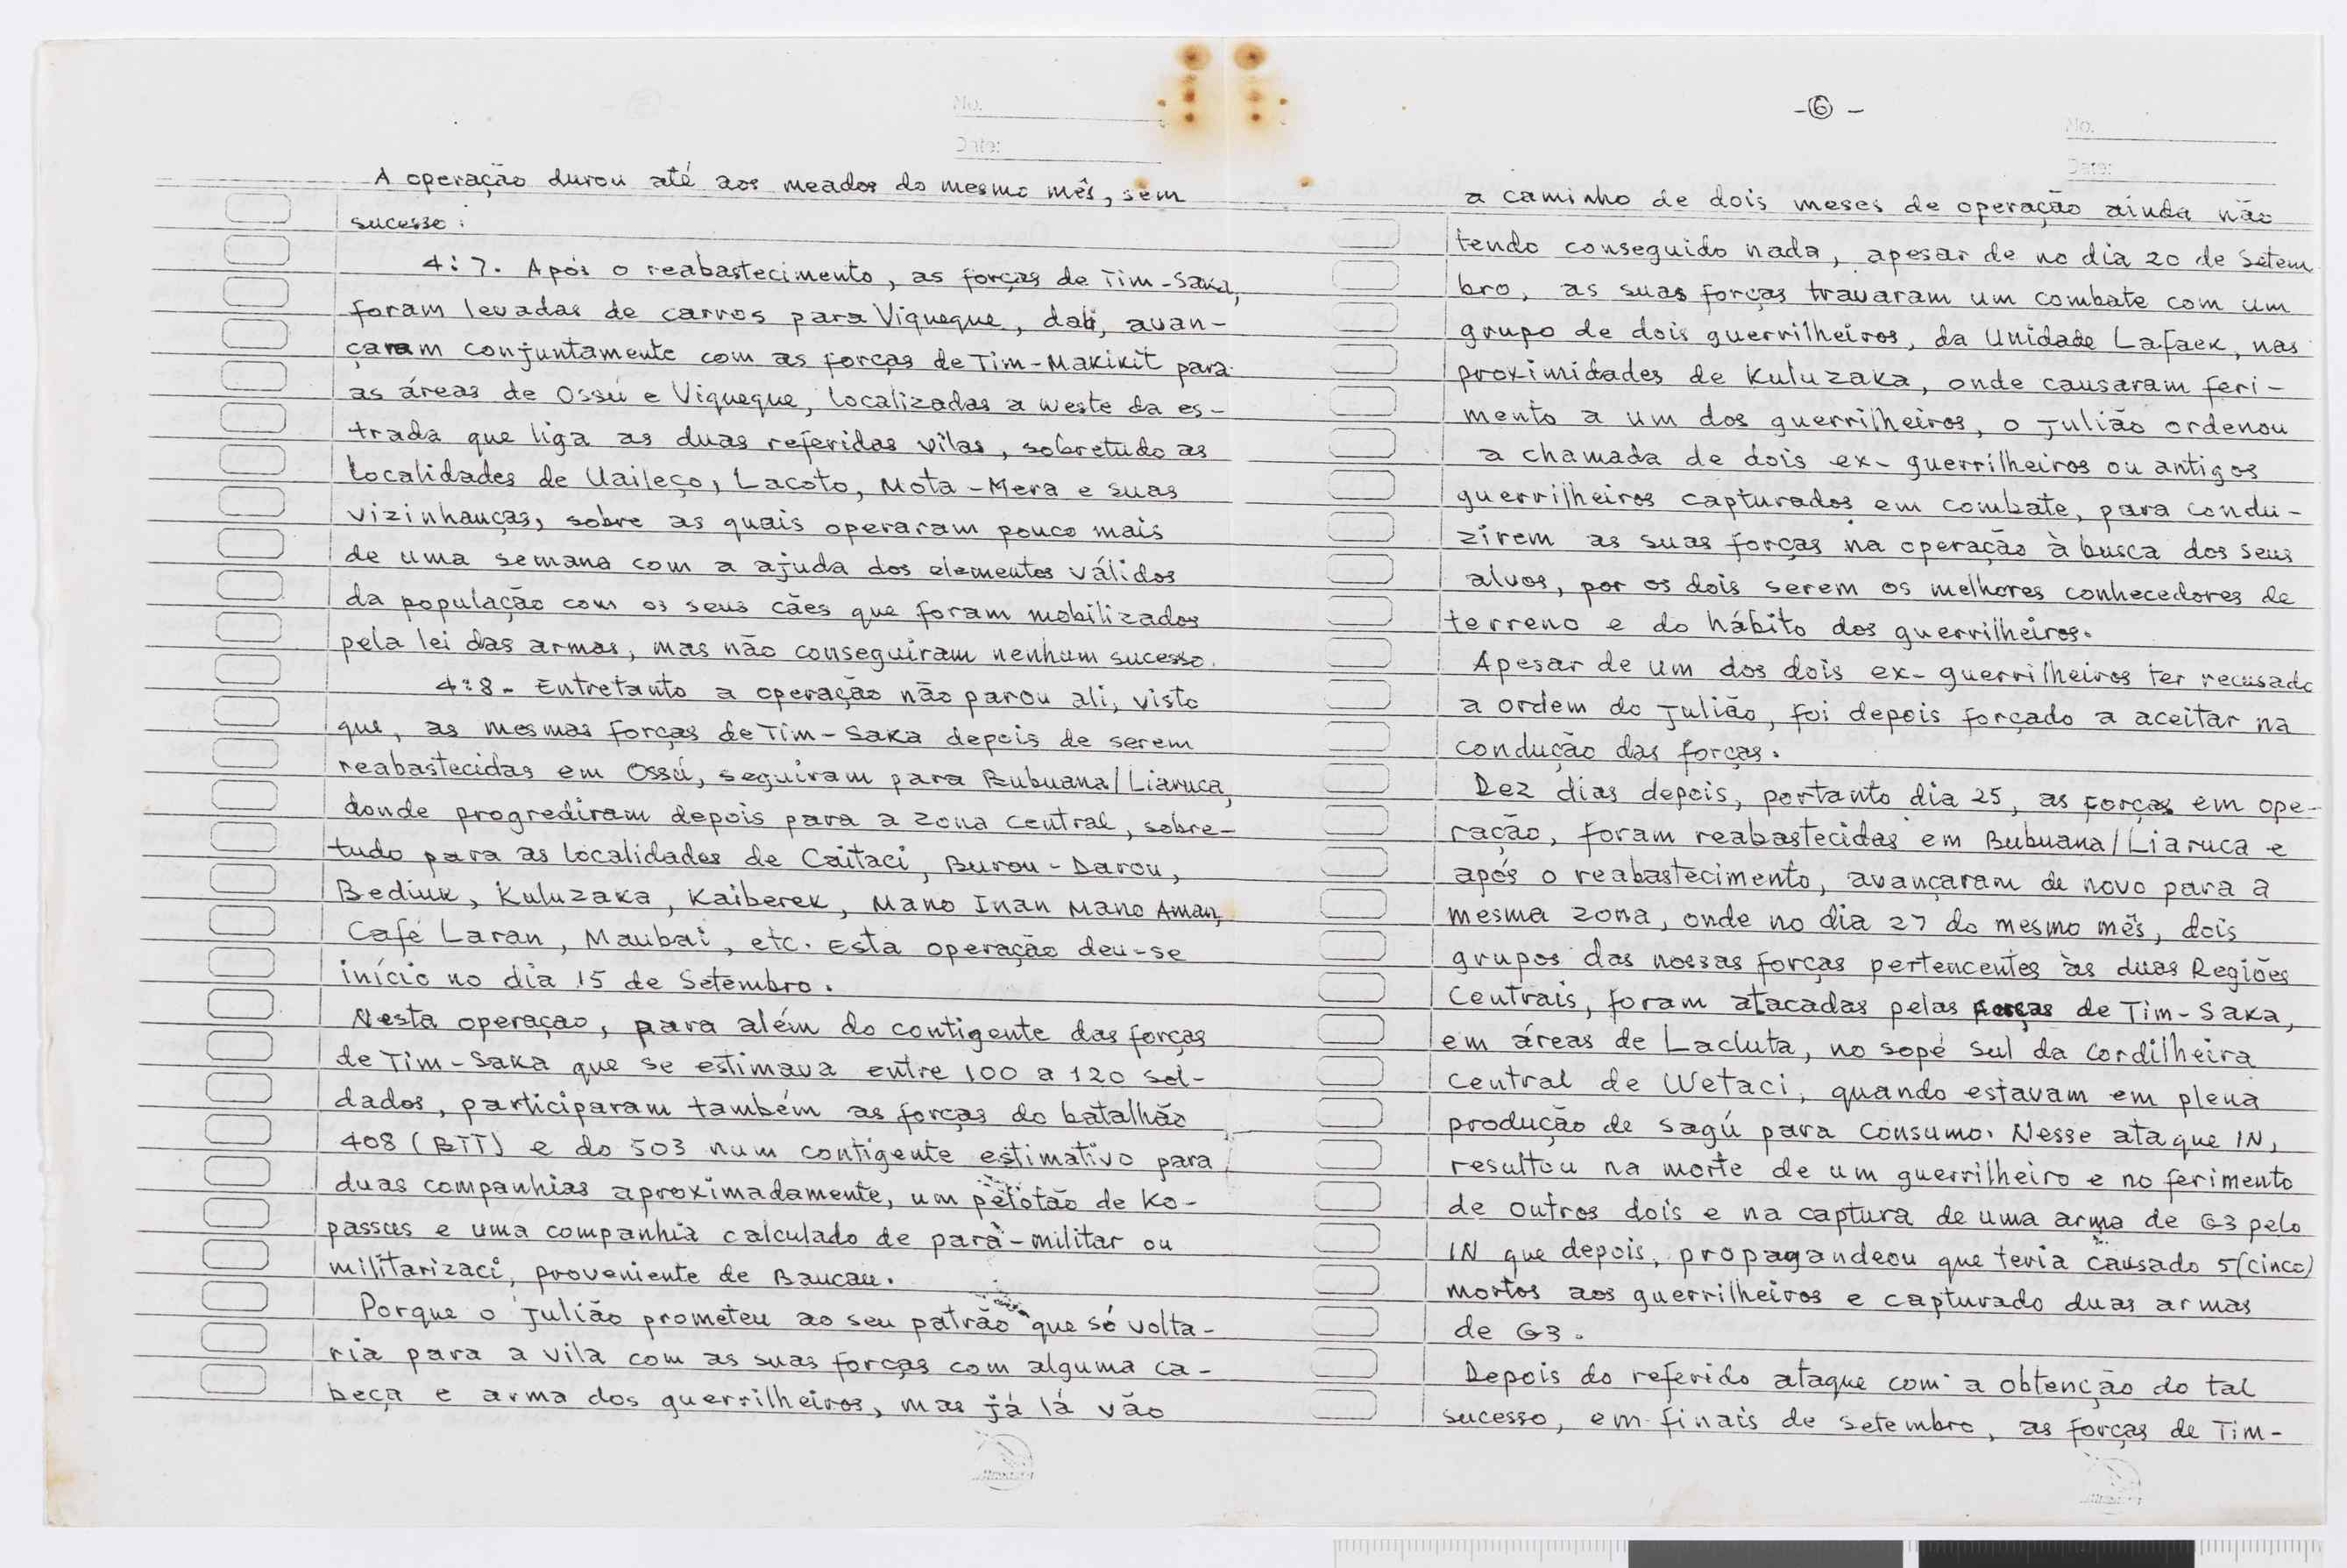 No.
Date:
A operação durou até aos meados do mesmo mês, sem
sucesso.
4:7. Após o reabastecimento, as forças de Tim-Saka,
foram levadas de carros para Viqueque, dali, avan-
çaram conjuntamente com as forças de Tim-Makikit para
as áreas de Ossú e Viqueque, localizadas a weste da es-
trada que liga as duas referidas vilas, sobretudo as
localidades de Uaileço, Lacoto, Mota-Mera e suas
vizinhanças, sobre as quais operaram pouco mais
de uma semana com a ajuda dos elementos válidos
da população com os seus cães que foram mobilizados
pela lei das armas, mas não conseguiram nenhum sucesso.
4:8- Entretanto a operação não parou ali, visto
que, as mesmas forças de Tim-Saka depois de serem
reabastecidas em Ossú, seguiram para Bubuana/Liaruca,
donde progrediram depois para a zona central, sobre-
tudo para as localidades de Caitaci, Burou-Darou,
Bediuk, Kuluzaka, Kaiberek, Mano Inan Mano Aman,
Café Laran, Maubai, etc. Esta operação deu-se
início no dia 15 de Setembro.
Nesta operaçao, para além do contigente das forças
de Tim-Saka que se estimava entre 100 a 120 sol-
dados, participaram também as forças do batalhão
408 (BTT) e do 503 num contigente estimativo para
duas companhias aproximadamente, um pelotão de Ko-
passus e uma companhia calculado de pará-militar ou
militarizaci, proveniente de Baucau.
Porque o Julião prometeu ao seu patrão que só volta-
ria para a vila com as suas forças com alguma ca-
beça e arma dos guerrilheiros, mas já lá vão
-6-
No.
Date:
a caminho de dois meses de operação ainda não
tendo conseguido nada, apesar de no dia 20 de Setem
bro, as suas forças travaram um combate com um
grupo de dois guerrilheiros, da Unidade Lafaek, nas
proximidades de Kuluzaka, onde causaram feri-
mento a um dos guerrilheiros, o Julião ordenou
a chamada de dois ex-guerrilheiros ou antigos
guerrilheiros capturados em combate, para condu-
zirem as suas forças na operação à busca dos seus
alvos, por os dois serem os melhores conhecedores de
terreno e do hábito dos guerrilheiros.
Apesar de um dos dois ex-guerrilheiros ter recusado
a ordem do Julião, foi depois forçado a aceitar na
condução das forças.
Dez dias depois, portanto dia 25, as forças em ope-
ração, foram reabastecidas em Bubuana/Liaruca e
após o reabastecimento, avançaram de novo para a
mesma zona, onde no dia 27 do mesmo mês, dois
grupos das nossas forças pertencentes às duas Regiões
Centrais, foram atacadas pelas forças de Tim-Saka,
em áreas de Lacluta, no sopé sul da Cordilheira
Central de Wetaci, quando estavam em plena
produção de sagú para consumo. Nesse ataque IN,
resultou na morte de um guerrilheiro e no ferimento
de outros dois e na captura de uma arma de G3 pelo
IN que depois, propagandeou que teria causado 5(cinco)
mortos aos guerrilheiros e capturado duas armas
de G3.
Depois do referido ataque com a obtenção do tal
sucesso, em finais de Setembro, as forças de Tim-